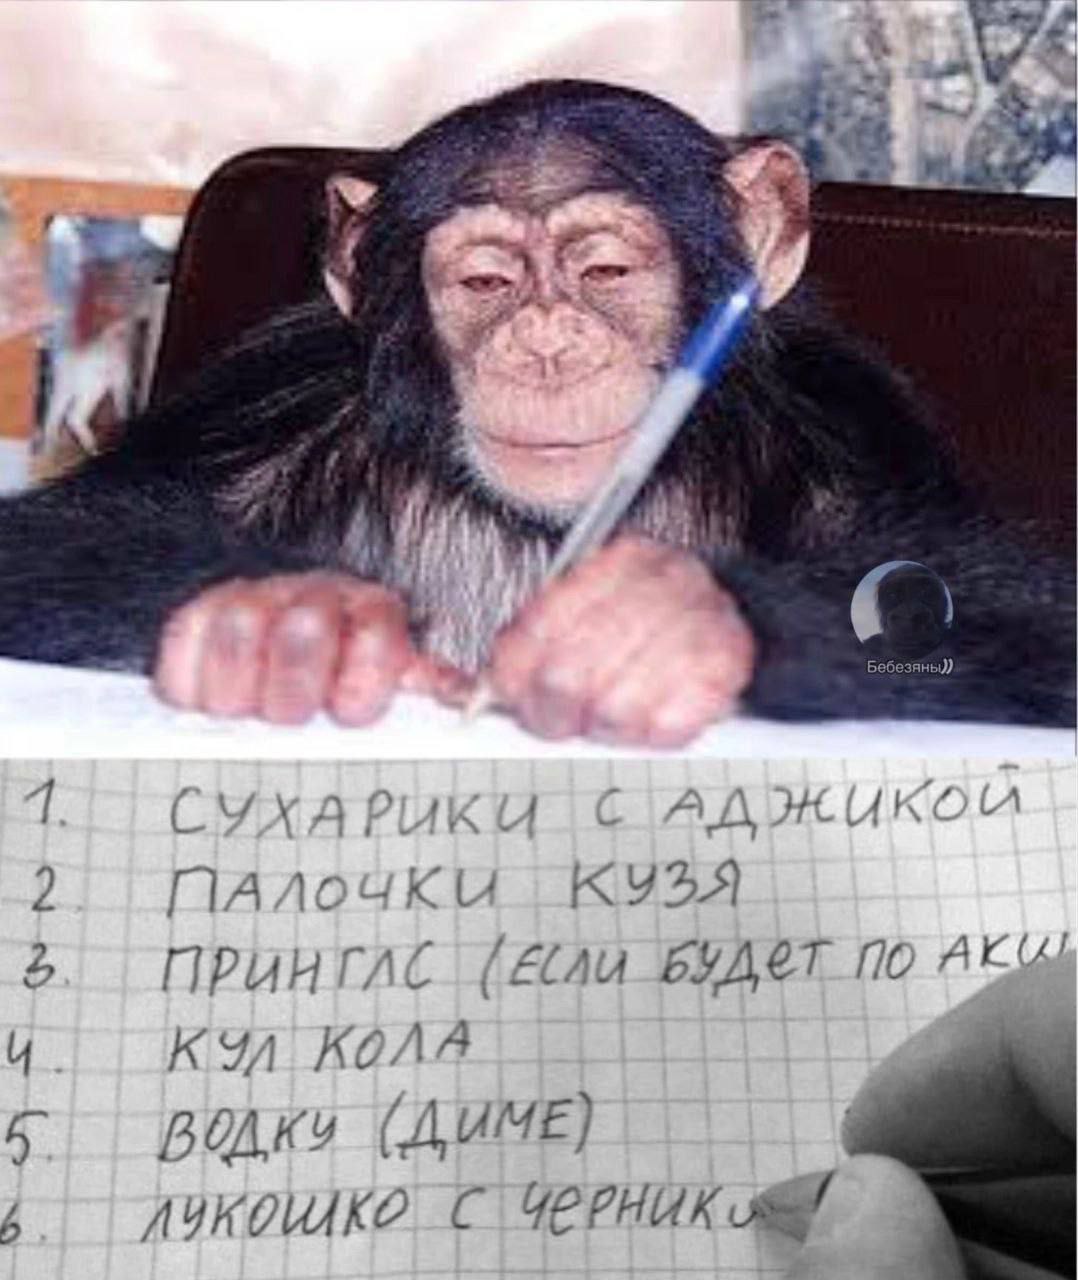 Бебезяны))
1. СУХАРИКИ С АДЖИКОЙ
2. ПАЛОЧКИ КУЗЯ
3. ПРИНГЛС (ЕСЛИ БУДЕТ ПО АКЦИ
4. КУЛ КОЛА
5. ВОДКУ (ДИМЕ)
6. ЛУКОШКО С ЧЕРНИКИ